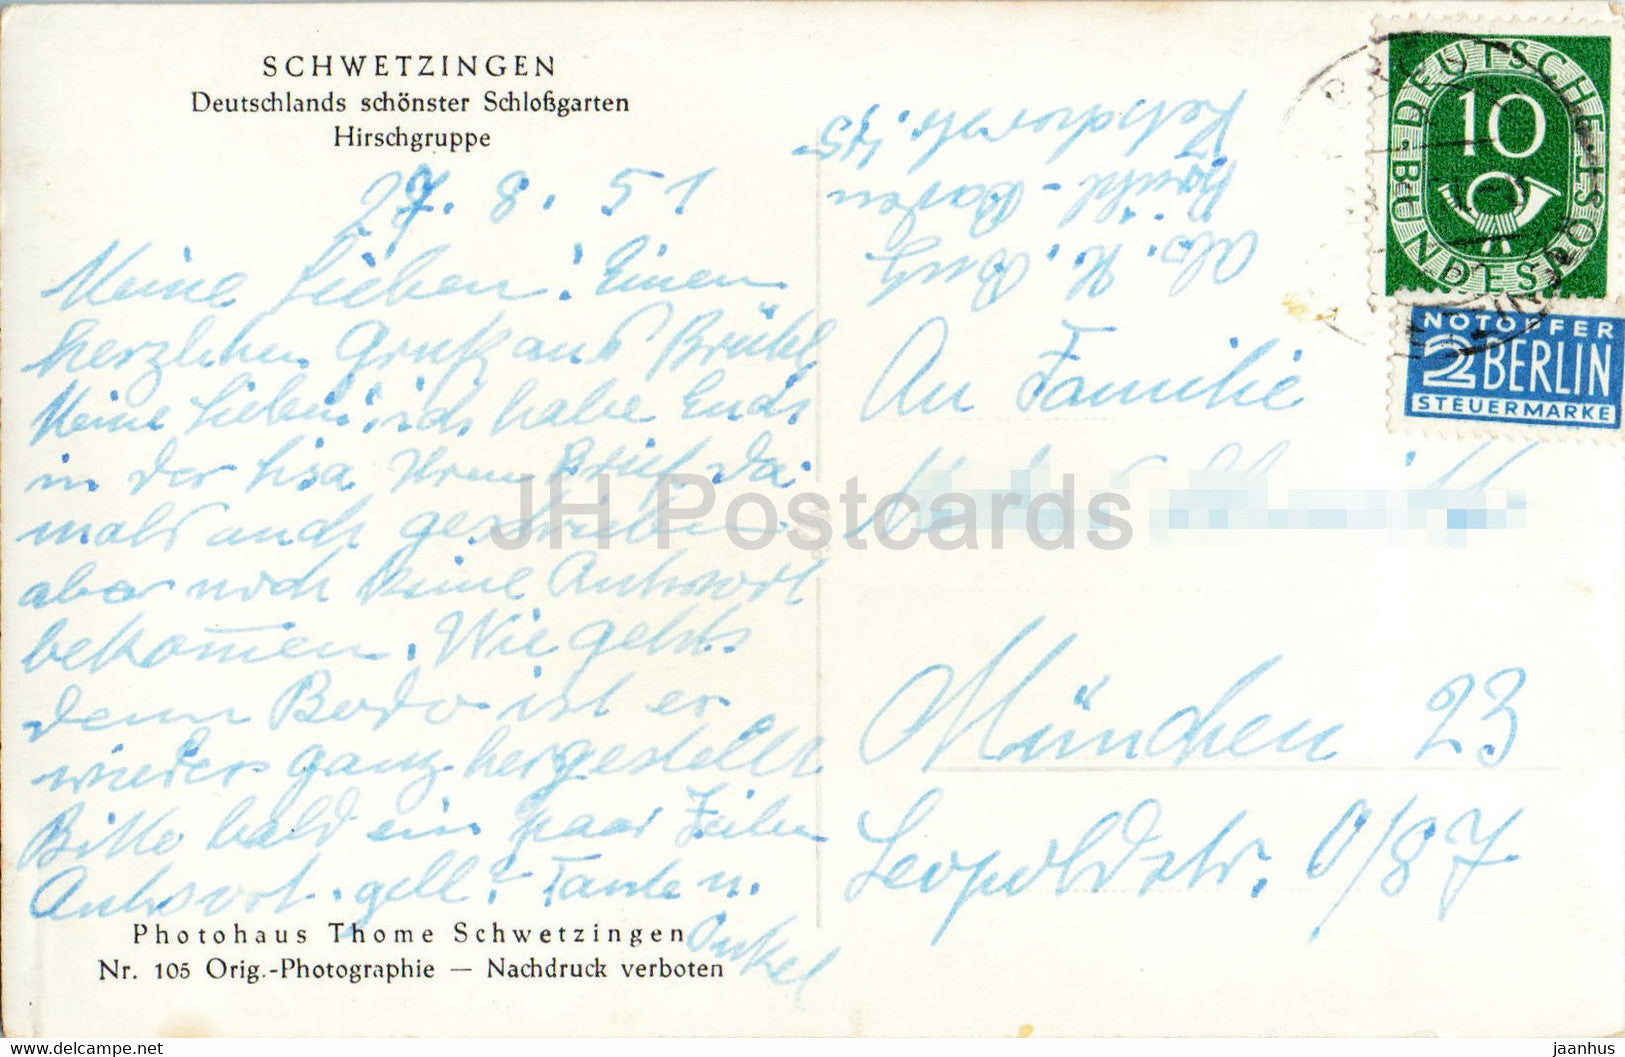 SCHWETZINGEN
Deutschlands schönster Schloßgarten
Hirschgruppe
27. 8. 51
Meine Lieben! Einen
herzlichen Gruß aus Brühl
Meine Lieben! ich habe Ends
in der Lisa Ihren Brief da
mals auch geschrieben
aber noch keine Antwort
bekommen. Wie gehts
denn Bodo ist er
wieder ganz hergestellt
Bitte bald ein paar Zeilen
Antwort. gell? Tante u.
Onkel
Photohaus Thome Schwetzingen
Nr. 105 Orig.-Photographie — Nachdruck verboten
Abs. H.
Brühl-Baden
45
DEUTSCHE BUNDESPOST
10
NOTOPFER
2 BERLIN
STEUERMARKE
An Familie
München 23
Leopoldstr. 0/87
JH Postcards
https://www.delcampe.net
jaanhus